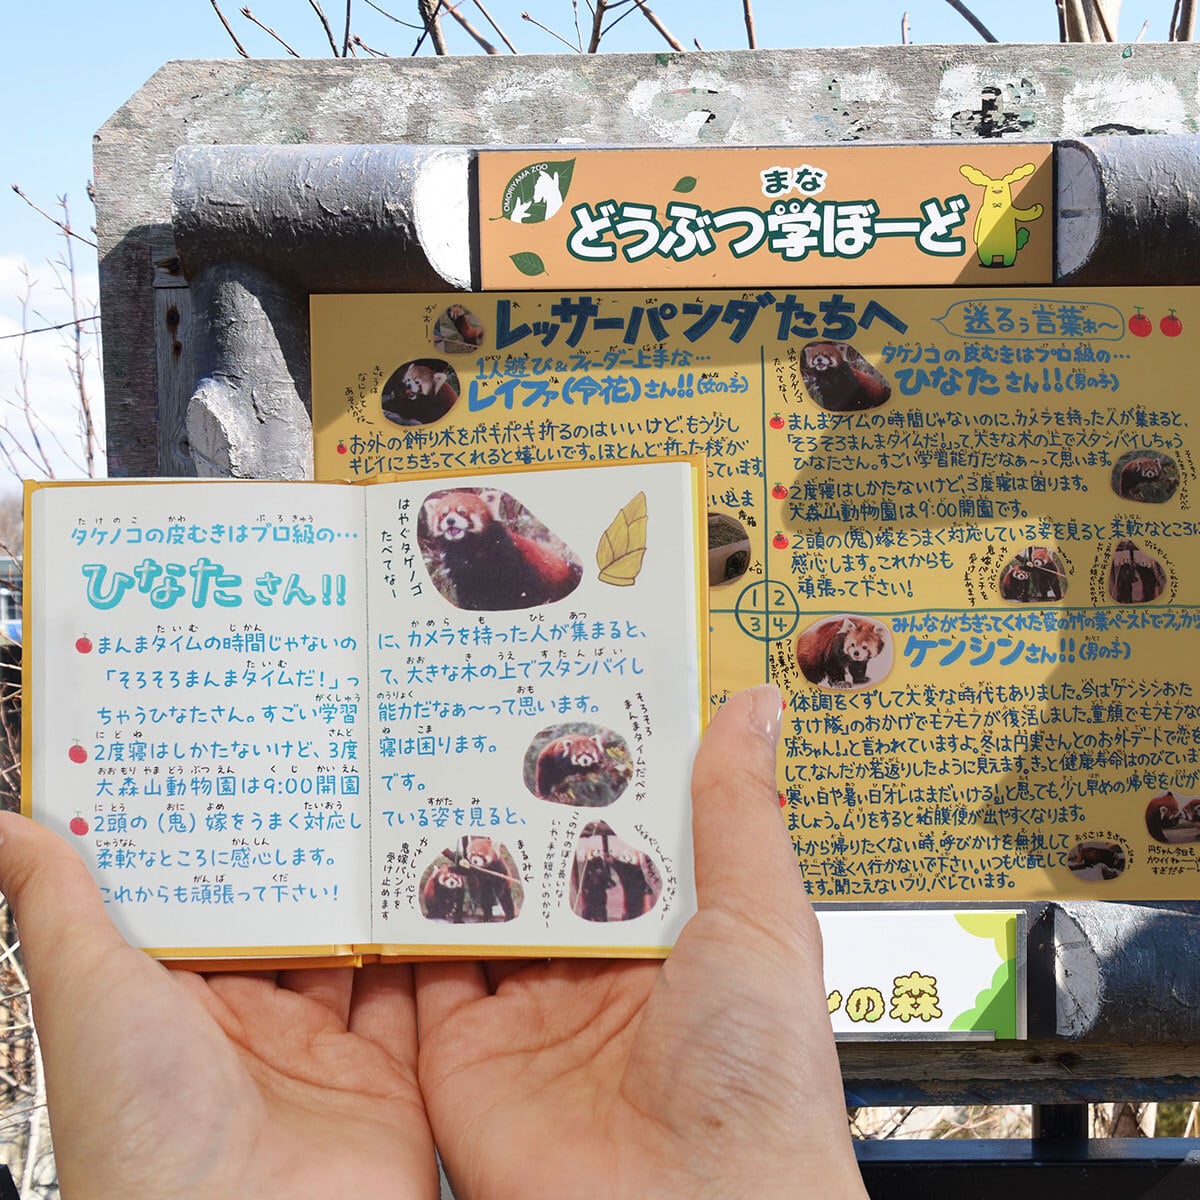 OMORIYAMA ZOO
まな
どうぶつ学ぼーど
れっさーぱんだ
レッサーパンダたちへ
送るぅ言葉ぁ〜
がおー
きょうは
なにして
あそぶかな
1人遊び&フィーダー上手な…
レイファ(令花)さん!!(女の子)
お外の飾り木をポキポキ折るのはいいけど、もう少し
キレイにちぎってくれると嬉しいです。ほとんど折った枝が
ています。
はやくタケノコ
たべてなー
タケノコの皮むきはプロ級の…
ひなたさん!!(男の子)
まんまタイムの時間じゃないのに、カメラを持った人が集まると、
「そろそろまんまタイムだ!」って、大きな木の上でスタンバイしちゃう
ひなたさん。すごい学習能力だなぁ〜って思います。
2度寝はしかたないけど、3度寝は困ります。
大森山動物園は9:00開園です。
2頭の(鬼)嫁をうまく対応している姿を見ると、柔軟なところに
感心します。これからも
頑張って下さい!
1 2
3 4
みんながちぎってくれた愛の竹の葉ペーストでフッカツ
ケンシンさん!!(男の子)
体調をくずして大変な時代もありました。今は「ケンシンおた
すけ隊」のおかげでモフモフが復活しました。童顔でモフモフな
赤ちゃん!」と言われていますよ。冬は円実さんとのお外デートで恋を
して、なんだか若返りしたように見えます。きっと健康寿命はのびています
寒い日や暑い日「オレはまだいける!」と思っても、少し早めの帰宅を心が
ましょう。ムリをすると粘膜便が出やすくなります。
外から帰りたくない時、呼びかけを無視して
ます。聞こえないフリ、バレています。
ンの森
たけのこ かわ ぷろきゅう
タケノコの皮むきはプロ級の…
ひなたさん!!
たいむ じかん
まんまタイムの時間じゃないの
たいむ
「そろそろまんまタイムだ!」っ
がくしゅう
ちゃうひなたさん。すごい学習
にどね さんど
2度寝はしかたないけど、3度
おおもりやまどうぶつえん くじ かいえん
大森山動物園は9:00開園
にとう おに よめ たいおう
2頭の(鬼)嫁をうまく対応し
じゅうなん かんしん
柔軟なところに感心します。
がんば くだ
これからも頑張って下さい!
はやくタケノコ
たべてなー
かめら も ひと あつ
に、カメラを持った人が集まると、
おお き うえ すたんばい
て、大きな木の上でスタンバイし
のうりょく おも
能力だなぁ〜って思います。
ね こま
寝は困ります。
です。
すがた み
ている姿を見ると、
そろそろ
まんまタイムだべが
やさしい心で、
鬼嫁パンチを
受け止めます
まるみ
この竹のぼう長いなー
いや、手が短かいのかなー
ひなたくん、とれないよー